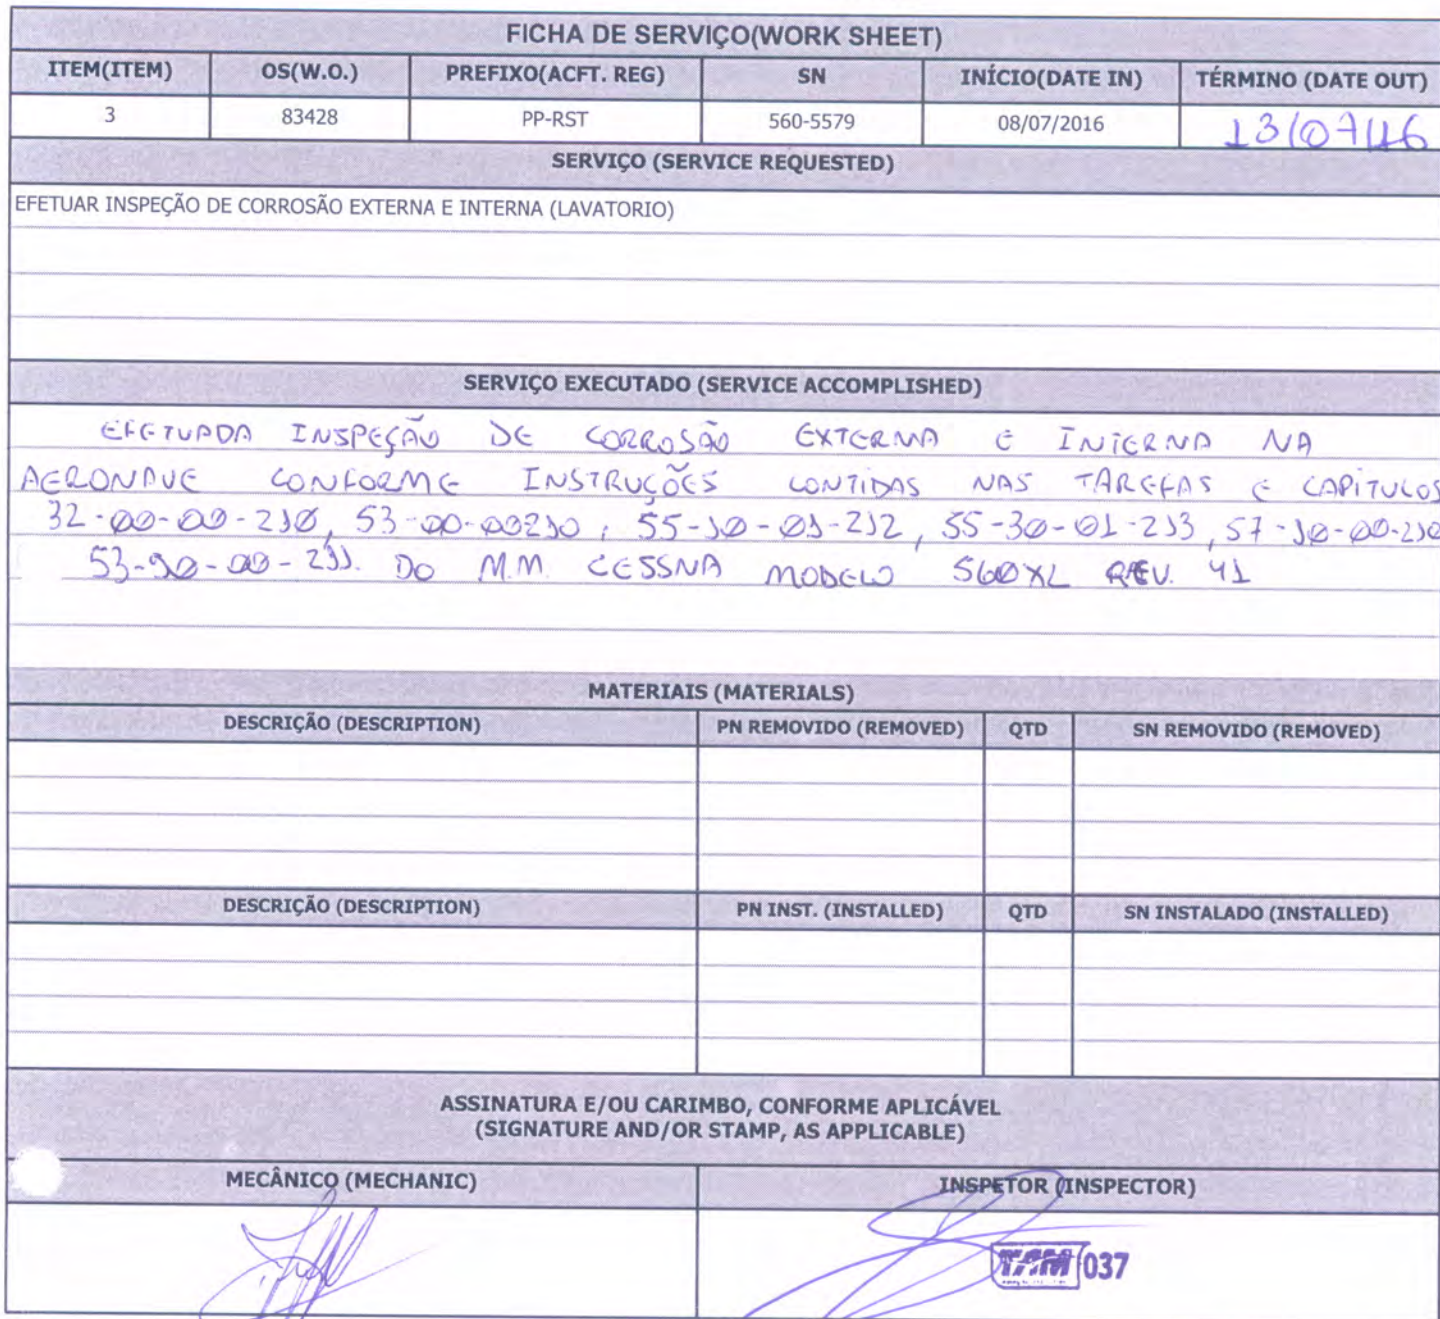 FICHA DE SERVIÇO(WORK SHEET)
ITEM(ITEM) OS(W.O.) PREFIXO(ACFT. REG) SN INÍCIO(DATE IN) TÉRMINO (DATE OUT)
3 83428 PP-RST 560-5579 08/07/2016 13/07/16
SERVIÇO (SERVICE REQUESTED)
EFETUAR INSPEÇÃO DE CORROSÃO EXTERNA E INTERNA (LAVATORIO)
SERVIÇO EXECUTADO (SERVICE ACCOMPLISHED)
EFETUADA INSPEÇÃO DE CORROSÃO EXTERNA E INTERNA NA
AERONAVE CONFORME INSTRUÇÕES CONTIDAS NAS TAREFAS E CAPITULOS
32-00-00-210, 53-00-00210, 55-10-01-212, 55-30-01-213, 57-10-00-210
53-90-00-211. DO M.M. CESSNA MODELO 560XL REV. 41
MATERIAIS (MATERIALS)
DESCRIÇÃO (DESCRIPTION) PN REMOVIDO (REMOVED) QTD SN REMOVIDO (REMOVED)
DESCRIÇÃO (DESCRIPTION) PN INST. (INSTALLED) QTD SN INSTALADO (INSTALLED)
ASSINATURA E/OU CARIMBO, CONFORME APLICÁVEL
(SIGNATURE AND/OR STAMP, AS APPLICABLE)
MECÂNICO (MECHANIC) INSPETOR (INSPECTOR)
TAM 037